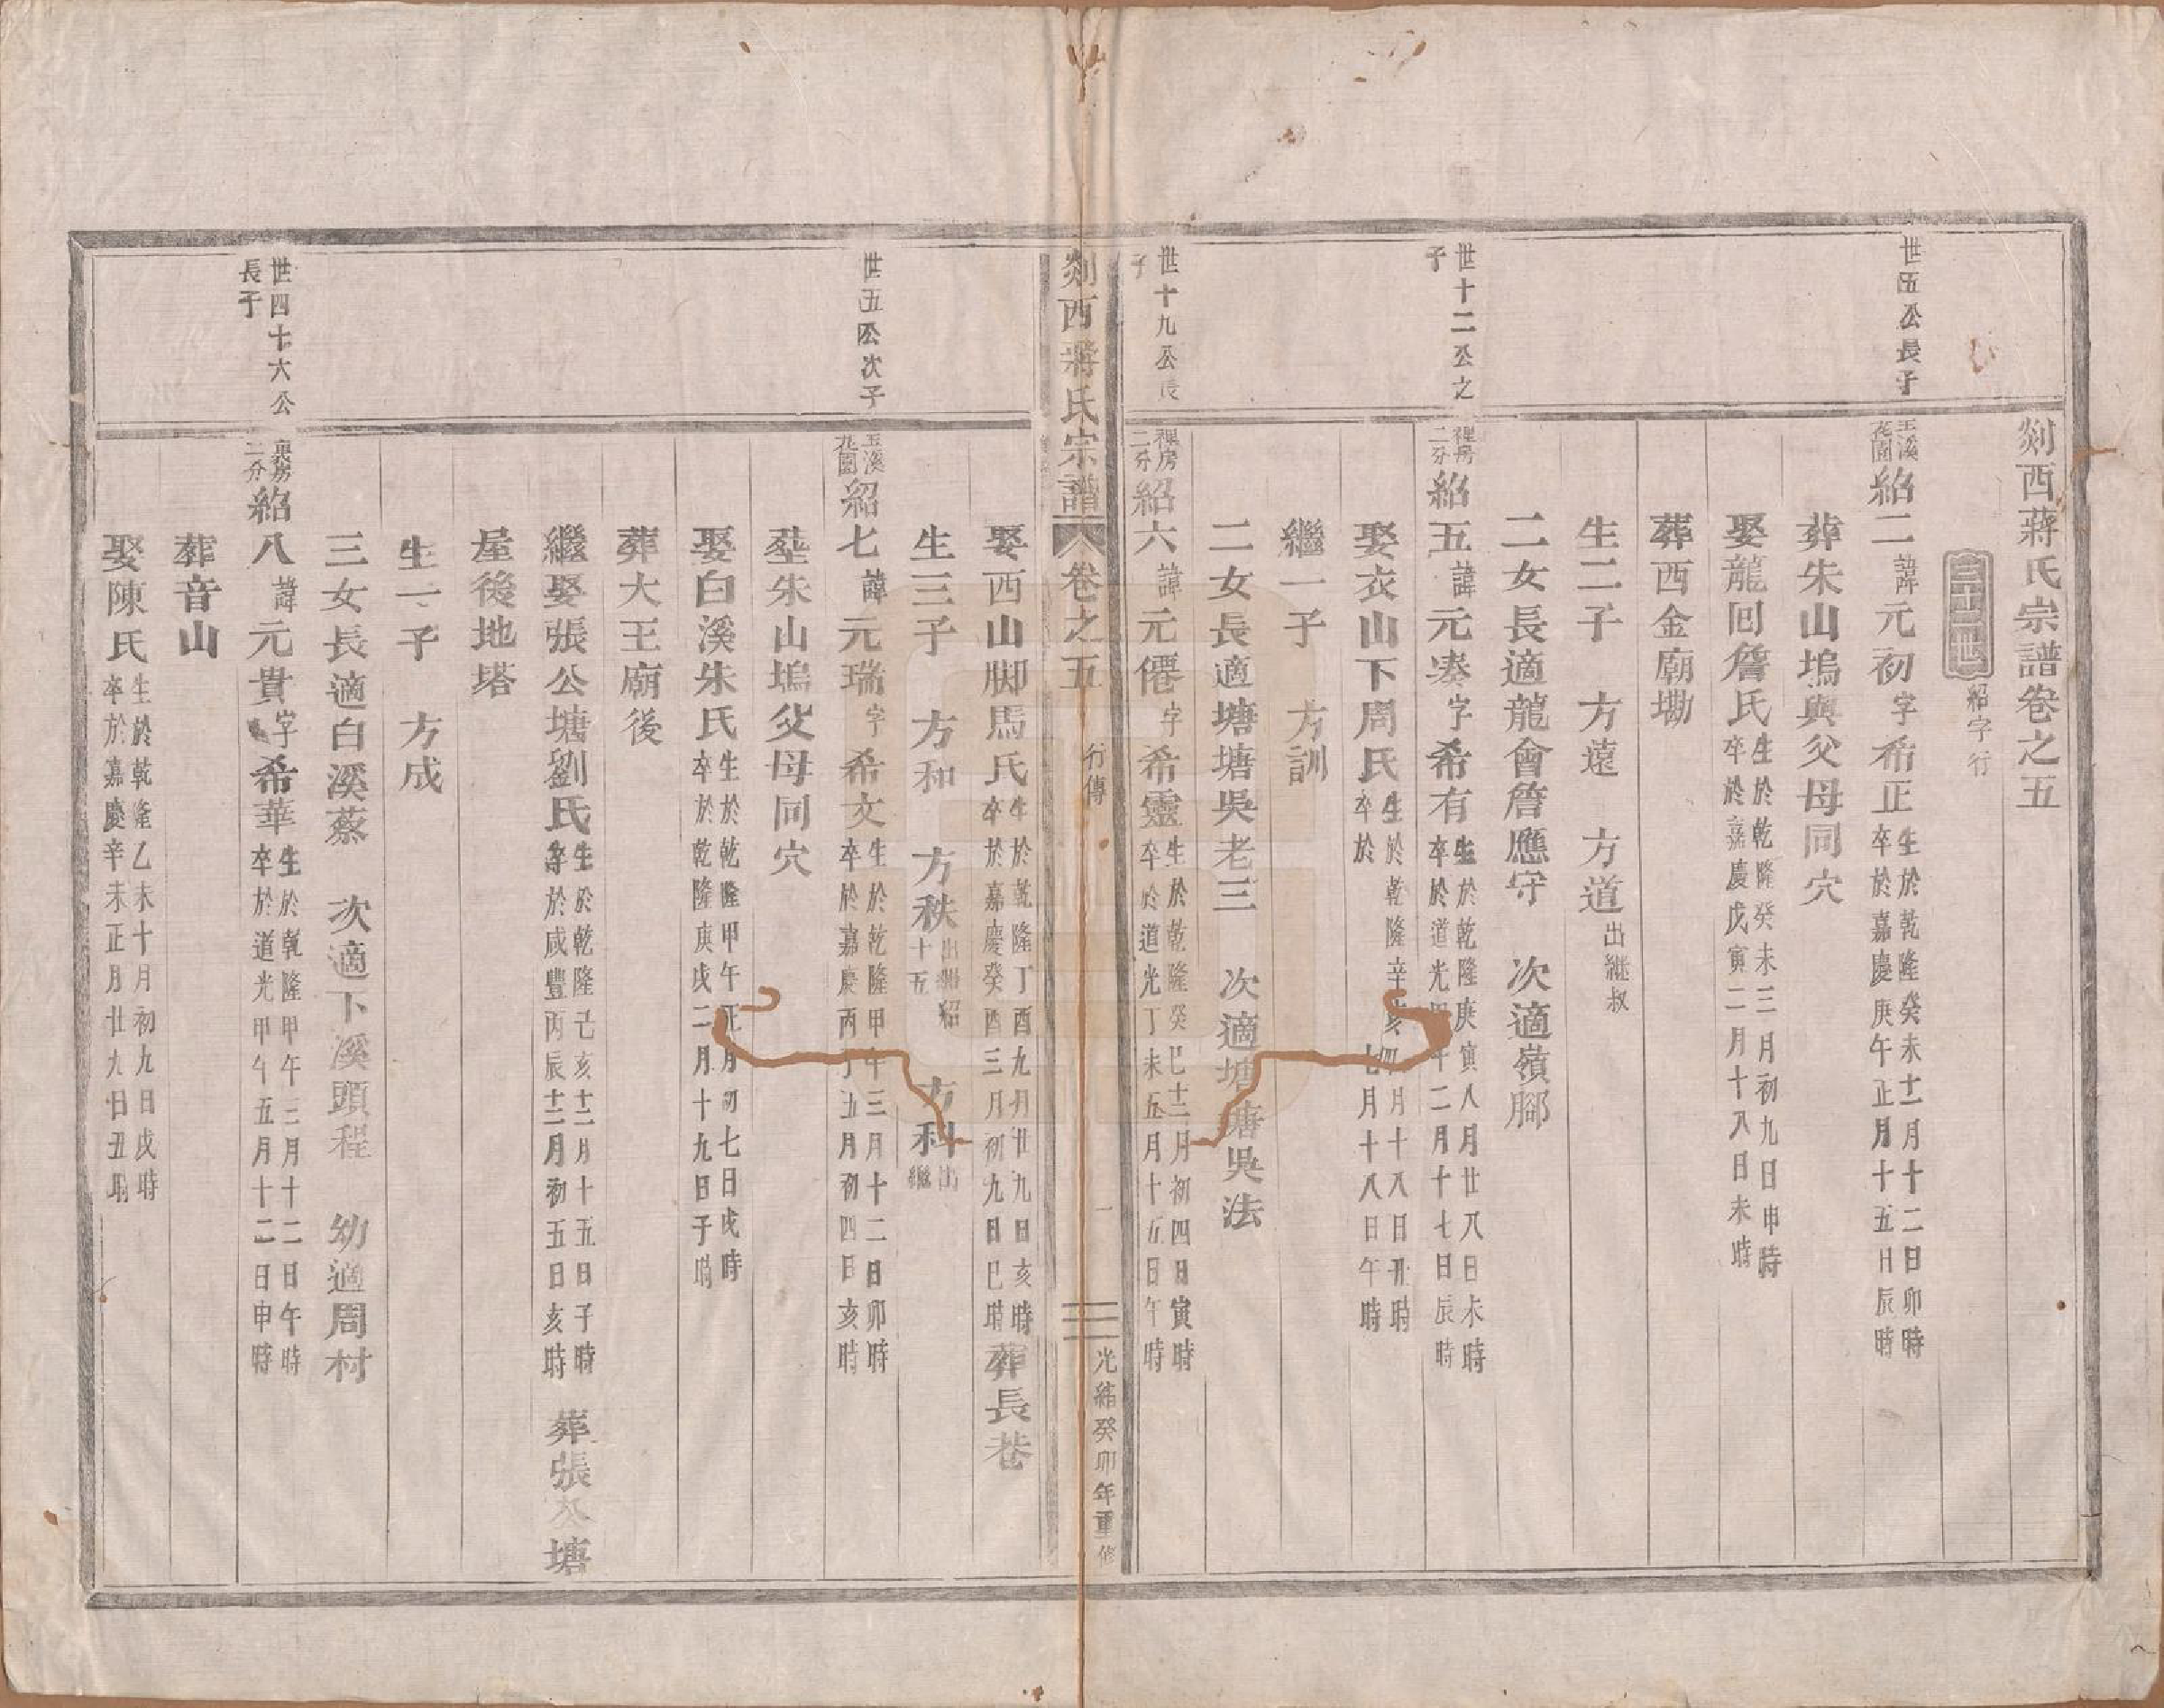 剡西蔣氏宗譜卷之五
三十四世 紹字行
世五公長子
玉溪花園 紹二諱元初字希正 生於乾隆癸未十一月十二日卯時 卒於嘉慶庚午正月十五日辰時
葬朱山塢與父母同穴
娶龍回詹氏 生於乾隆癸未三月初九日申時 卒於嘉慶戊寅二月十八日未時
葬西金廟墈
生二子 方遠 方道 出繼叔
二女長適龍會詹應守 次適嶺腳
世十二公之子
裡房二分 紹五諱元湊字希有 生於乾隆庚寅八月廿八日未時 卒於道光甲午二月十七日辰時
娶衣山下周氏 生於乾隆辛亥四月十八日丑時 卒於 七月十八日午時
繼一子 方訓
二女長適塘塘吳老三 次適塘塘吳法
世十九公長子
裡房二分 紹六諱元僊字希靈 生於乾隆癸巳十二月初四日寅時 卒於道光丁未五月十五日午時
剡西蔣氏宗譜 卷之五 行傳 一 光緒癸卯年重修
娶西山脚馬氏 生於乾隆丁酉九月廿九日亥時 卒於嘉慶癸酉三月初九日巳時 葬長巷
生三子 方和 方秩 出繼紹十五 方科 出繼
世五公次子
玉溪花園 紹七諱元瑞字希文 生於乾隆甲午三月十二日卯時 卒於嘉慶丙子五月初四日亥時
塟朱山塢父母同穴
娶白溪朱氏 生於乾隆甲午正月初七日戌時 卒於乾隆庚戌二月十九日子時
葬大王廟後
繼娶張公塘劉氏 生於乾隆己亥十二月十五日子時 卒於咸豐丙辰十二月初五日亥時 葬張公塘
屋後地塔
生一子 方成
三女長適白溪蔡 次適下溪頭程 幼適周村
世四十六公長子
裏房二分 紹八諱元貴字希華 生於乾隆甲午三月十二日午時 卒於道光甲午五月十二日申時
葬音山
娶陳氏 生於乾隆乙未十月初九日戌時 卒於嘉慶辛未正月廿九日丑時